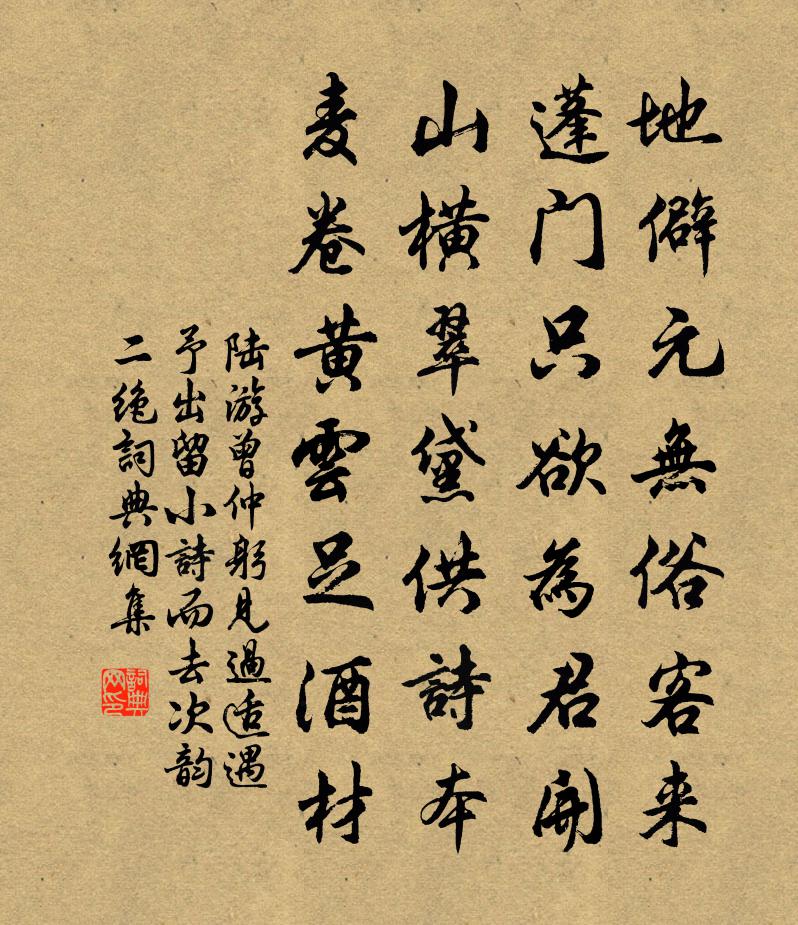 地僻元無俗客来
蓬门只欲為君開
山橫翠黛供詩本
麦卷黄雲足酒材
陆游曾仲躬見過适遇
予出留小詩而去次韵
二绝詞典網集
詞典
网印